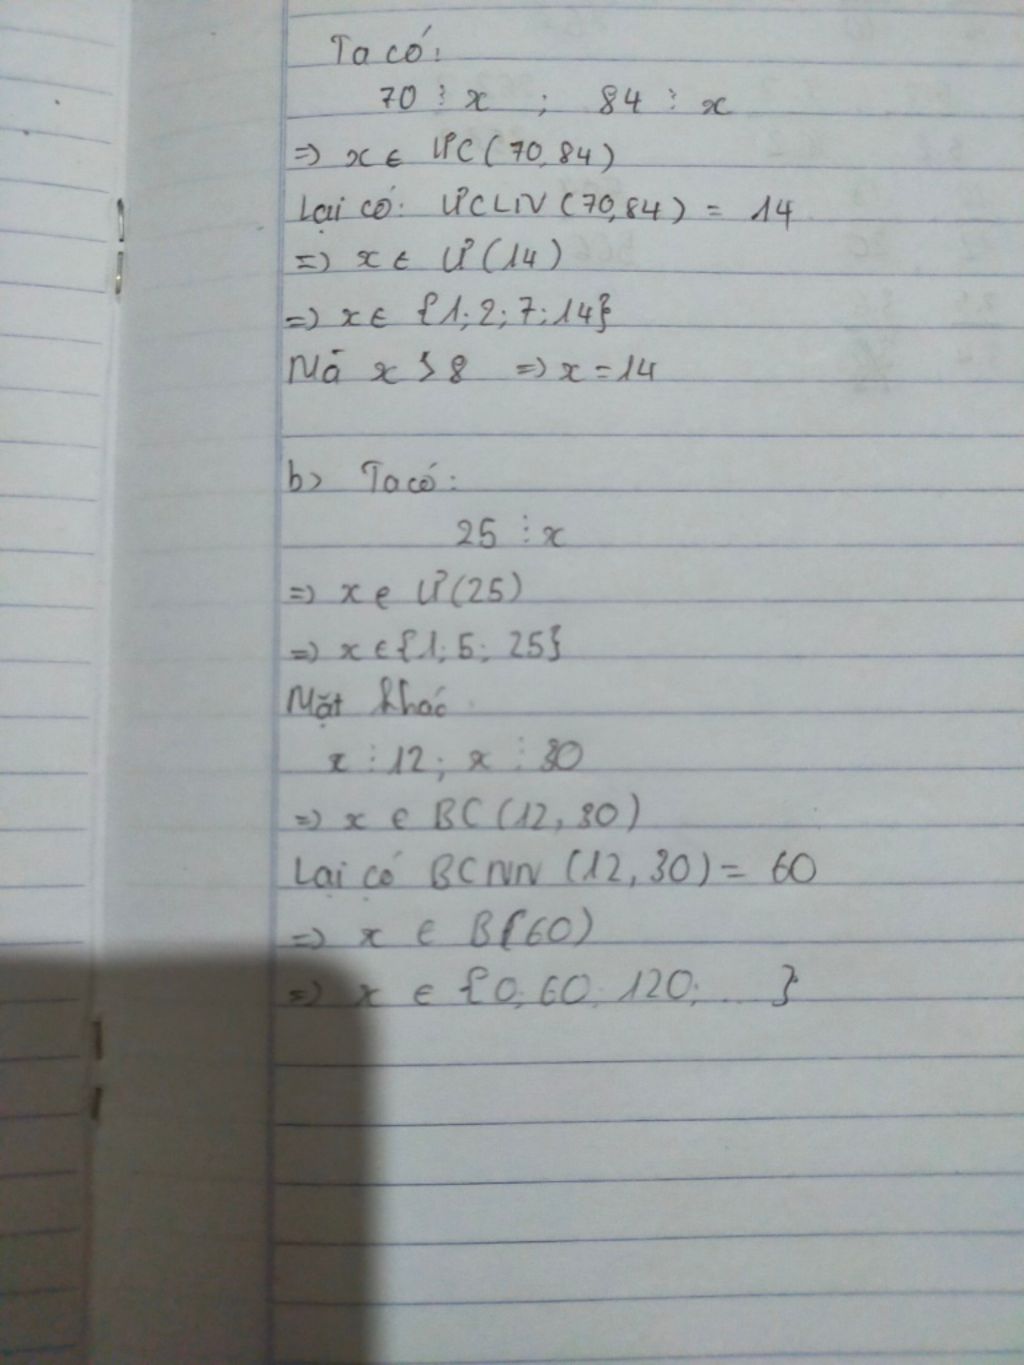 Ta có:
70 ⋮ x ; 84 ⋮ x
=> x ∈ ƯC(70,84)
Lại có: ƯCLN(70,84) = 14
=> x ∈ Ư(14)
=> x ∈ {1; 2; 7; 14}
Mà x > 8 => x = 14
b) Ta có:
25 ⋮ x
=> x ∈ Ư(25)
=> x ∈ {1; 5; 25}
Mặt khác
x ⋮ 12; x ⋮ 30
=> x ∈ BC(12, 30)
Lại có BCNN (12, 30) = 60
=> x ∈ B(60)
=> x ∈ {0; 60; 120; ... }